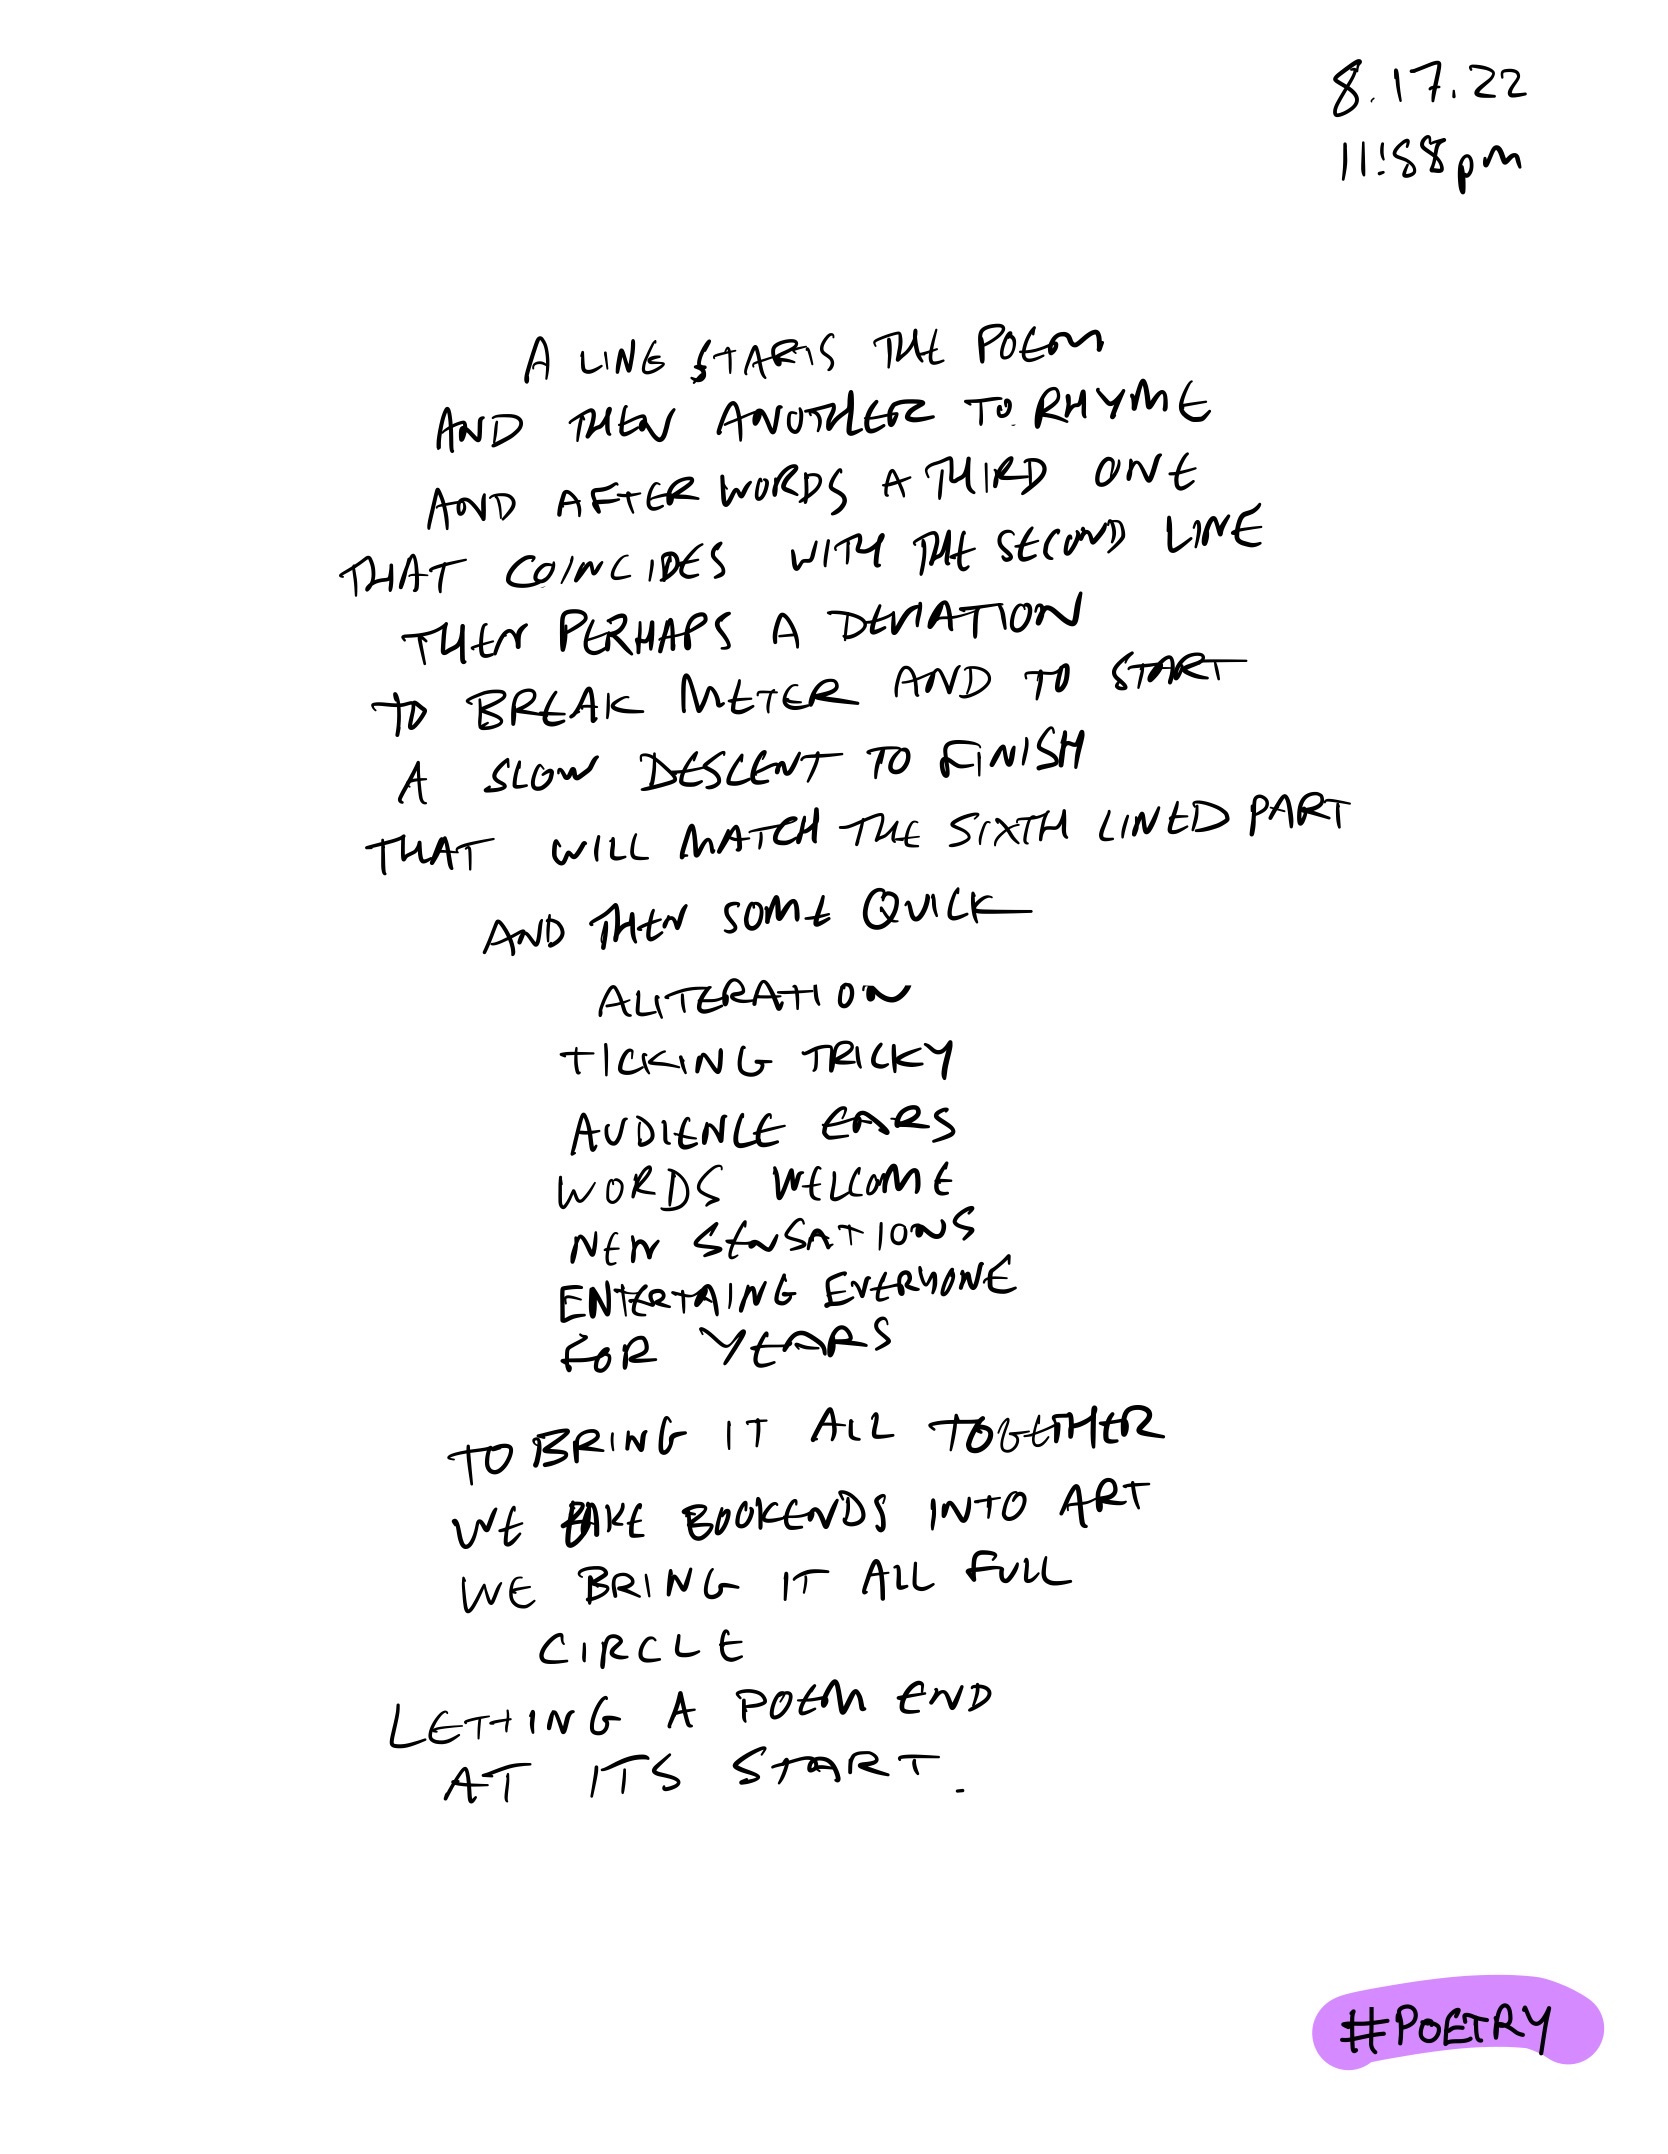 8.17.22
11:58pm
A LINE STARTS THE POEM
AND THEN ANOTHER TO RHYME
AND AFTER WORDS A THIRD ONE
THAT COINCIDES WITH THE SECOND LINE
THEN PERHAPS A DEVIATION
TO BREAK METER AND TO START
A SLOW DESCENT TO FINISH
THAT WILL MATCH THE SIXTH LINED PART
AND THEN SOME QUICK
ALITERATION
TICKING TRICKY
AUDIENCE EARS
WORDS WELCOME
NEW SENSATIONS
ENTERTAING EVERYONE
FOR YEARS
TO BRING IT ALL TOGETHER
WE BAKE BOOKENDS INTO ART
WE BRING IT ALL FULL
CIRCLE
LETTING A POEM END
AT ITS START.
#POETRY